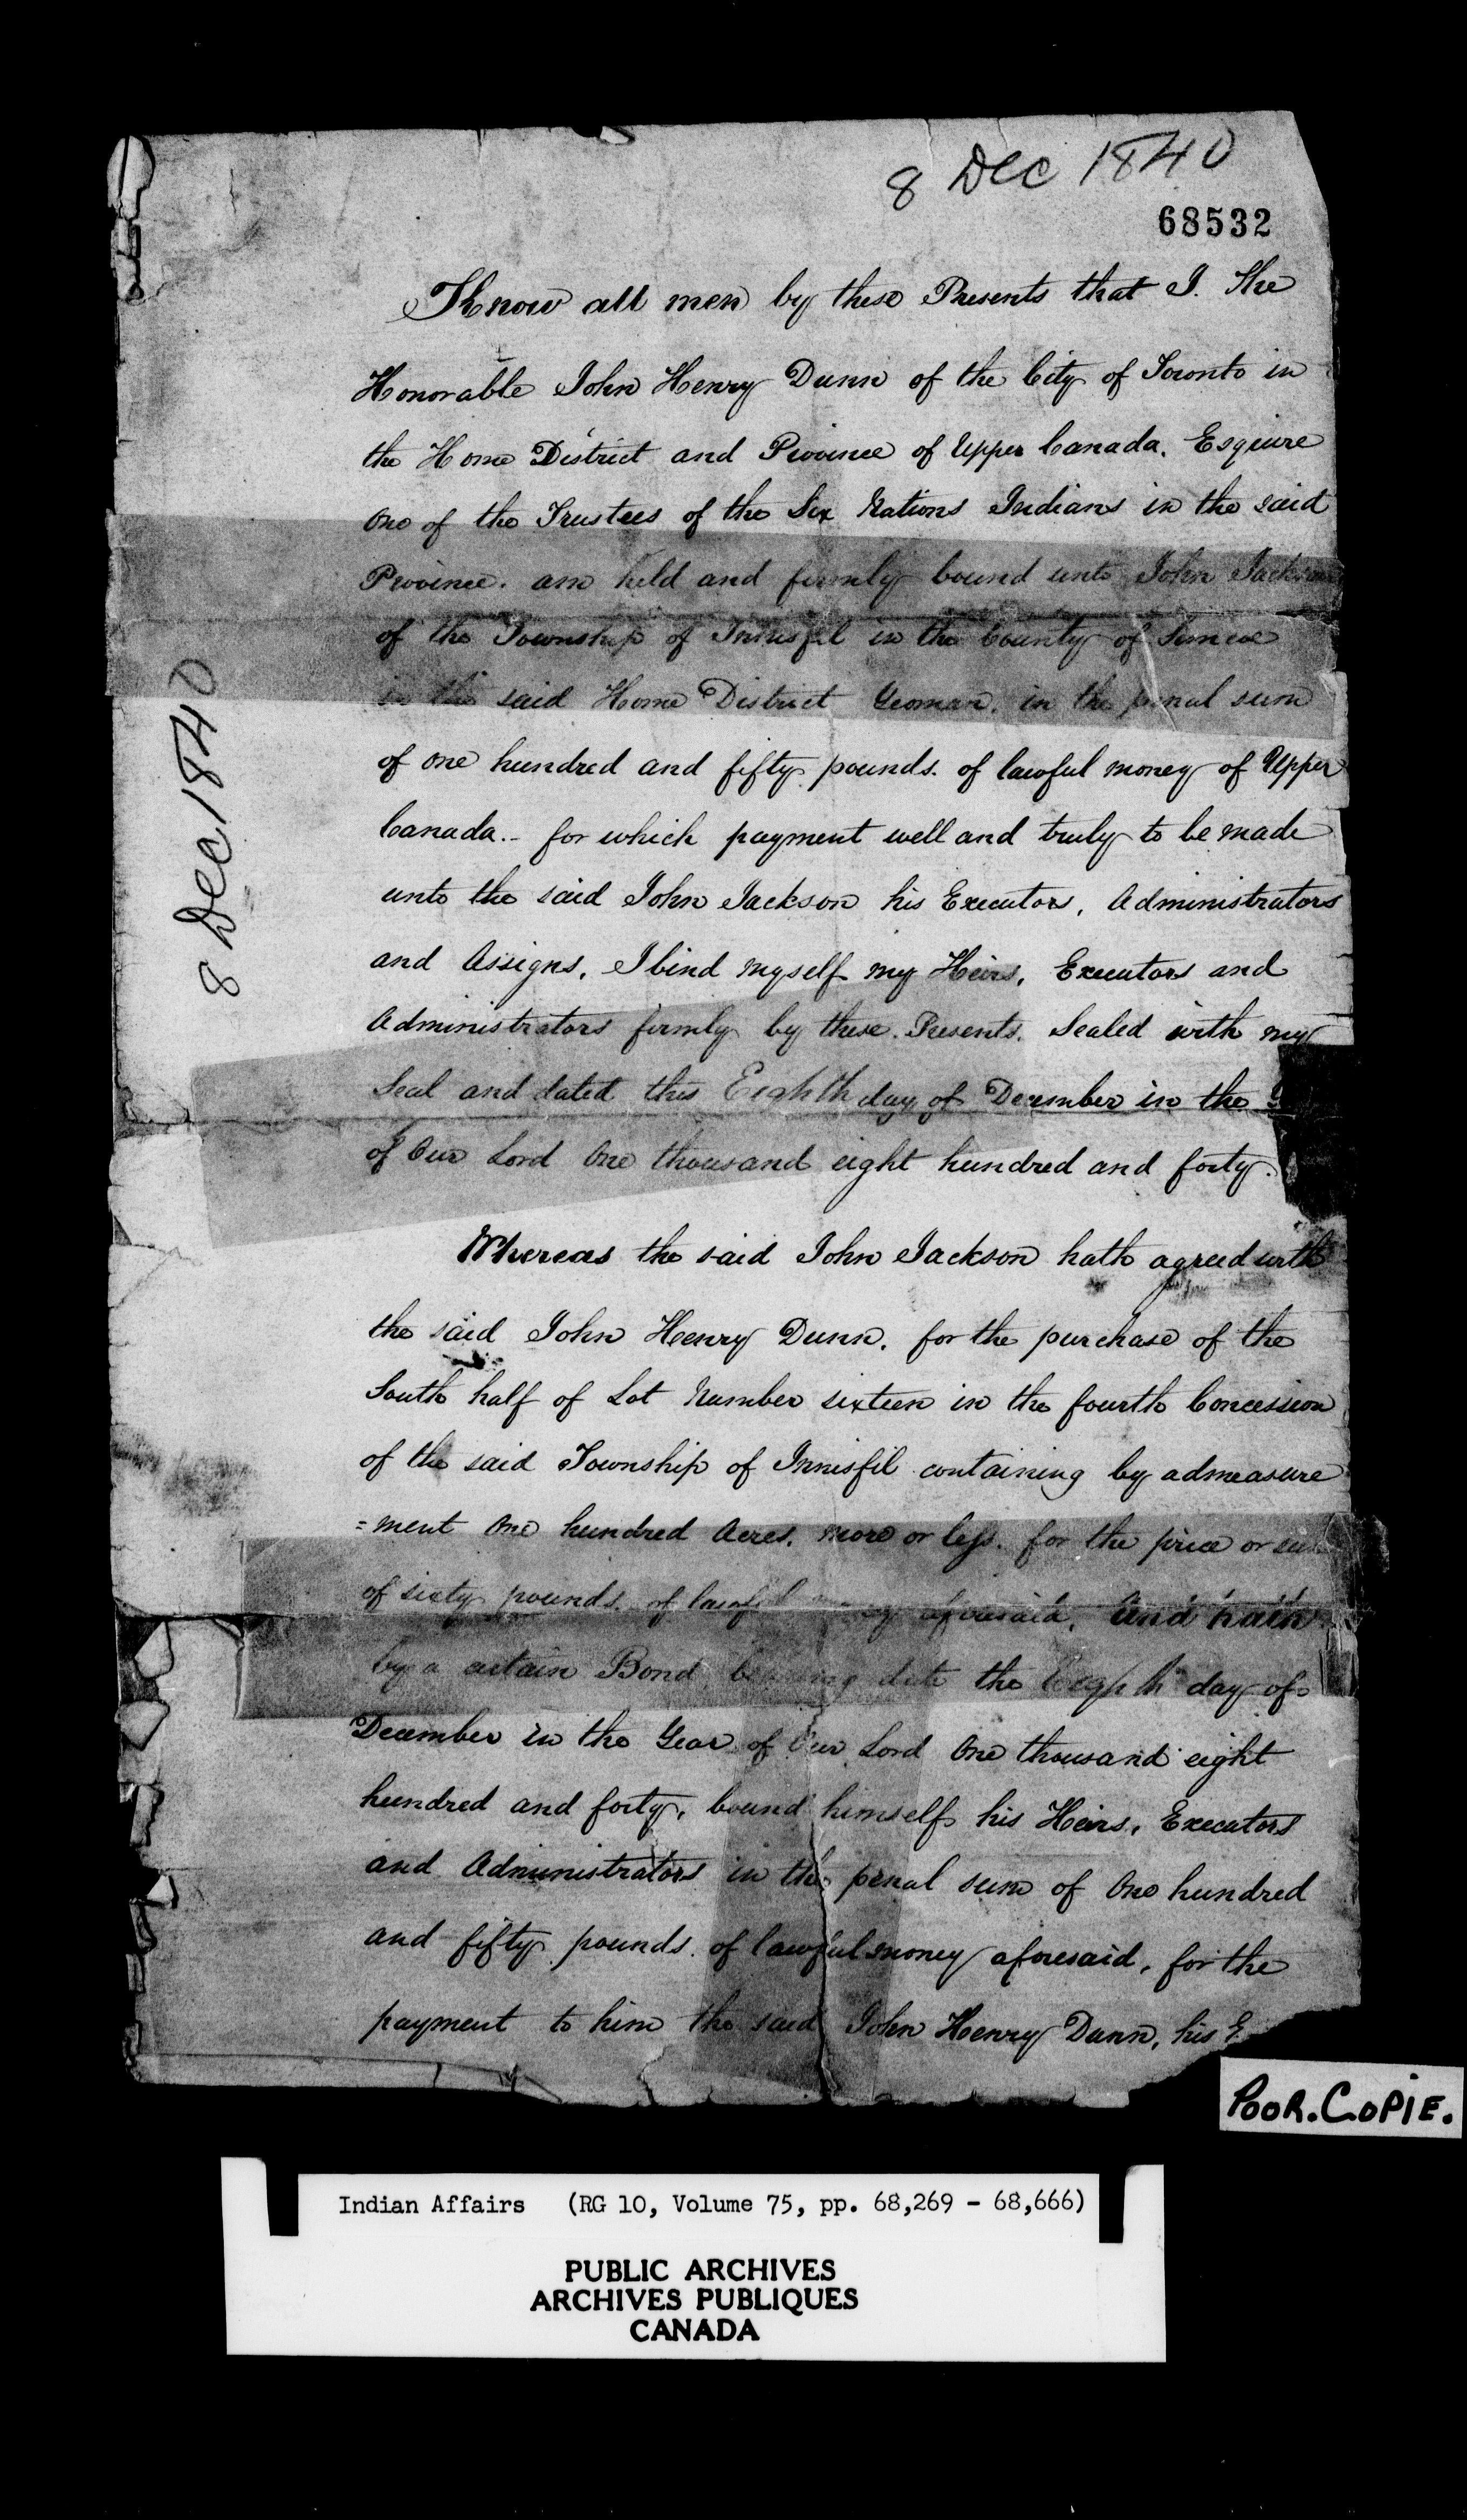 8 Dec 1840
68532
Know all men by these Presents that I. The
Honorable John Henry Dunn of the City of Toronto in
the Home District and Province of Upper Canada. Esquire
one of the Trustees of the Six Nations Indians in the said
Province. am held and firmly bound unto John Jackson
of the Township of Innisfil in the County of Simcoe
in the said Home District Yeoman. in the penal sum
of one hundred and fifty pounds. of lawful money of Upper
Canada.- for which payment well and truly to be made
unto the said John Jackson his Executors, Administrators
and Assigns, I bind myself my Heirs, Executors and
Administrators firmly by these. Presents. Sealed with my
Seal and dated this Eighth day of December in the
of Our Lord One thousand eight hundred and forty.
Whereas the said John Jackson hath agreed with
the said John Henry Dunn. for the purchase of the
South half of Lot Number sixteen in the fourth Concession
of the said Township of Innisfil containing by admeasure
=ment One hundred Acres. more or less. for the price or
of sixty pounds. of lawful money aforesaid. And hath
by a certain Bond bearing date the Eighth day of
December in the Year of Our Lord One thousand eight
hundred and forty, bound himself his Heirs, Executors
and Administrators in the penal sum of One hundred
and fifty pounds. of lawful money aforesaid, for the
payment to him the said John Henry Dunn, his
8 Dec 1840
POOR. COPIE.
Indian Affairs (RG 10, Volume 75, pp. 68,269 - 68,666)
PUBLIC ARCHIVES
ARCHIVES PUBLIQUES
CANADA